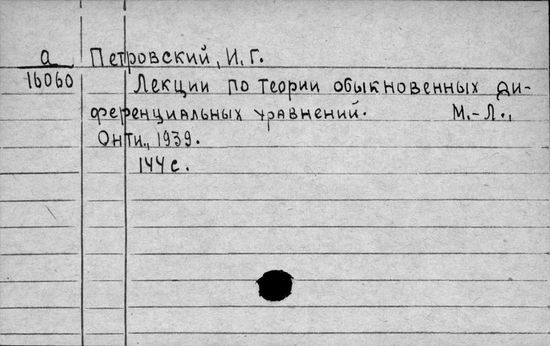 а Петровский, И. Г.
16060 Лекции по теории обыкновенных ди-
ференциальных уравнений. М.-Л.,
Онти., 1939.
144 с.